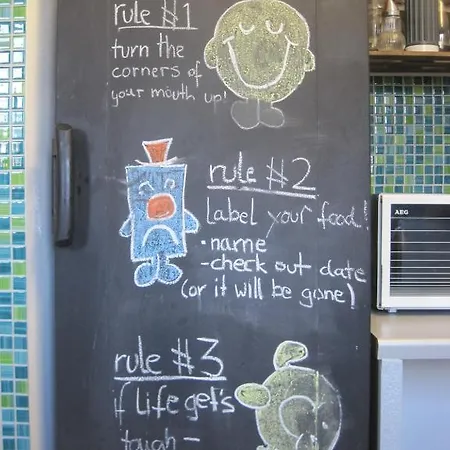 rule #1
turn the
corners of
your mouth up!
rule #2
Label your food!
• name
- check out date
(or it will be gone)
AEG
rule #3
if life get's
tough -